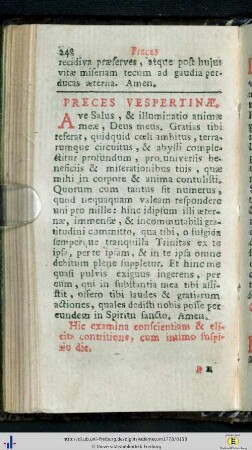 248 Preces
recidiva præserves, atque post hujus
vitæ miseriam tecum ad gaudia per-
ducas æterna. Amen.
PRECES VESPERTINÆ.
Ave Salus, & illuminatio animæ
meæ, Deus meus. Gratias tibi
referat, quidquid cœli ambitus, terra-
rumque circuitus, & abyssi comple-
ctitur profundum, pro universis be-
neficiis & miserationibus tuis, quæ
mihi in corpore & anima contulisti.
Quorum cum tantus sit numerus,
quod nequaquam valeam respondere
uni pro mille: hinc idipsum illi æter-
næ, immensæ, & incommutabili gra-
titudini committo, qua tibi, o fulgida
semperque tranquilla Trinitas ex te
ipsa, per te ipsam, & in te ipsa omne
debitum plene suppletur. Et hinc me
quasi pulvis exiguus ingerens, per
eum, qui in substantia mea tibi assi-
stit, offero tibi laudes & gratiarum
actiones, quales dedisti nobis posse per
eundem in Spiritu sancto. Amen.
Hic examina conscientiam & eli-
cita contritione, cum intimo suspi-
rio dic.